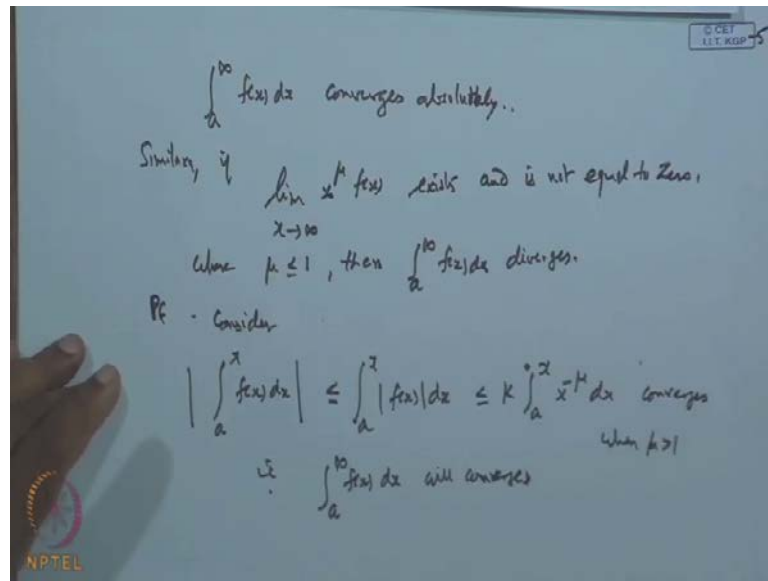 © CET
I.I.T. KGP
∫_a^∞ f(x) dx converges absolutely..
Similarly, if
lim_{x→∞} x^μ f(x) exists and is not equal to zero,
where μ ≤ 1, then ∫_a^∞ f(x) dx diverges.
Pf - Consider
| ∫_a^x f(x) dx | ≤ ∫_a^x |f(x)| dx ≤ K ∫_a^x x^{-μ} dx converges
when μ>1
ie ∫_a^∞ f(x) dx will converges
NPTEL